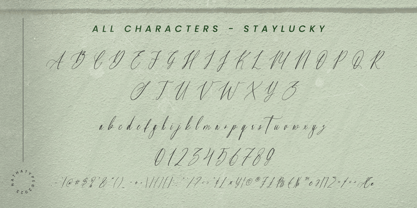 ALL CHARACTERS - STAYLUCKY
A B C D E F G H I J K L M N O P Q R
S T U V W X Y Z
a b c d e f g h i j k l m n o p q r s t u v w x y z
0 1 2 3 4 5 6 7 8 9